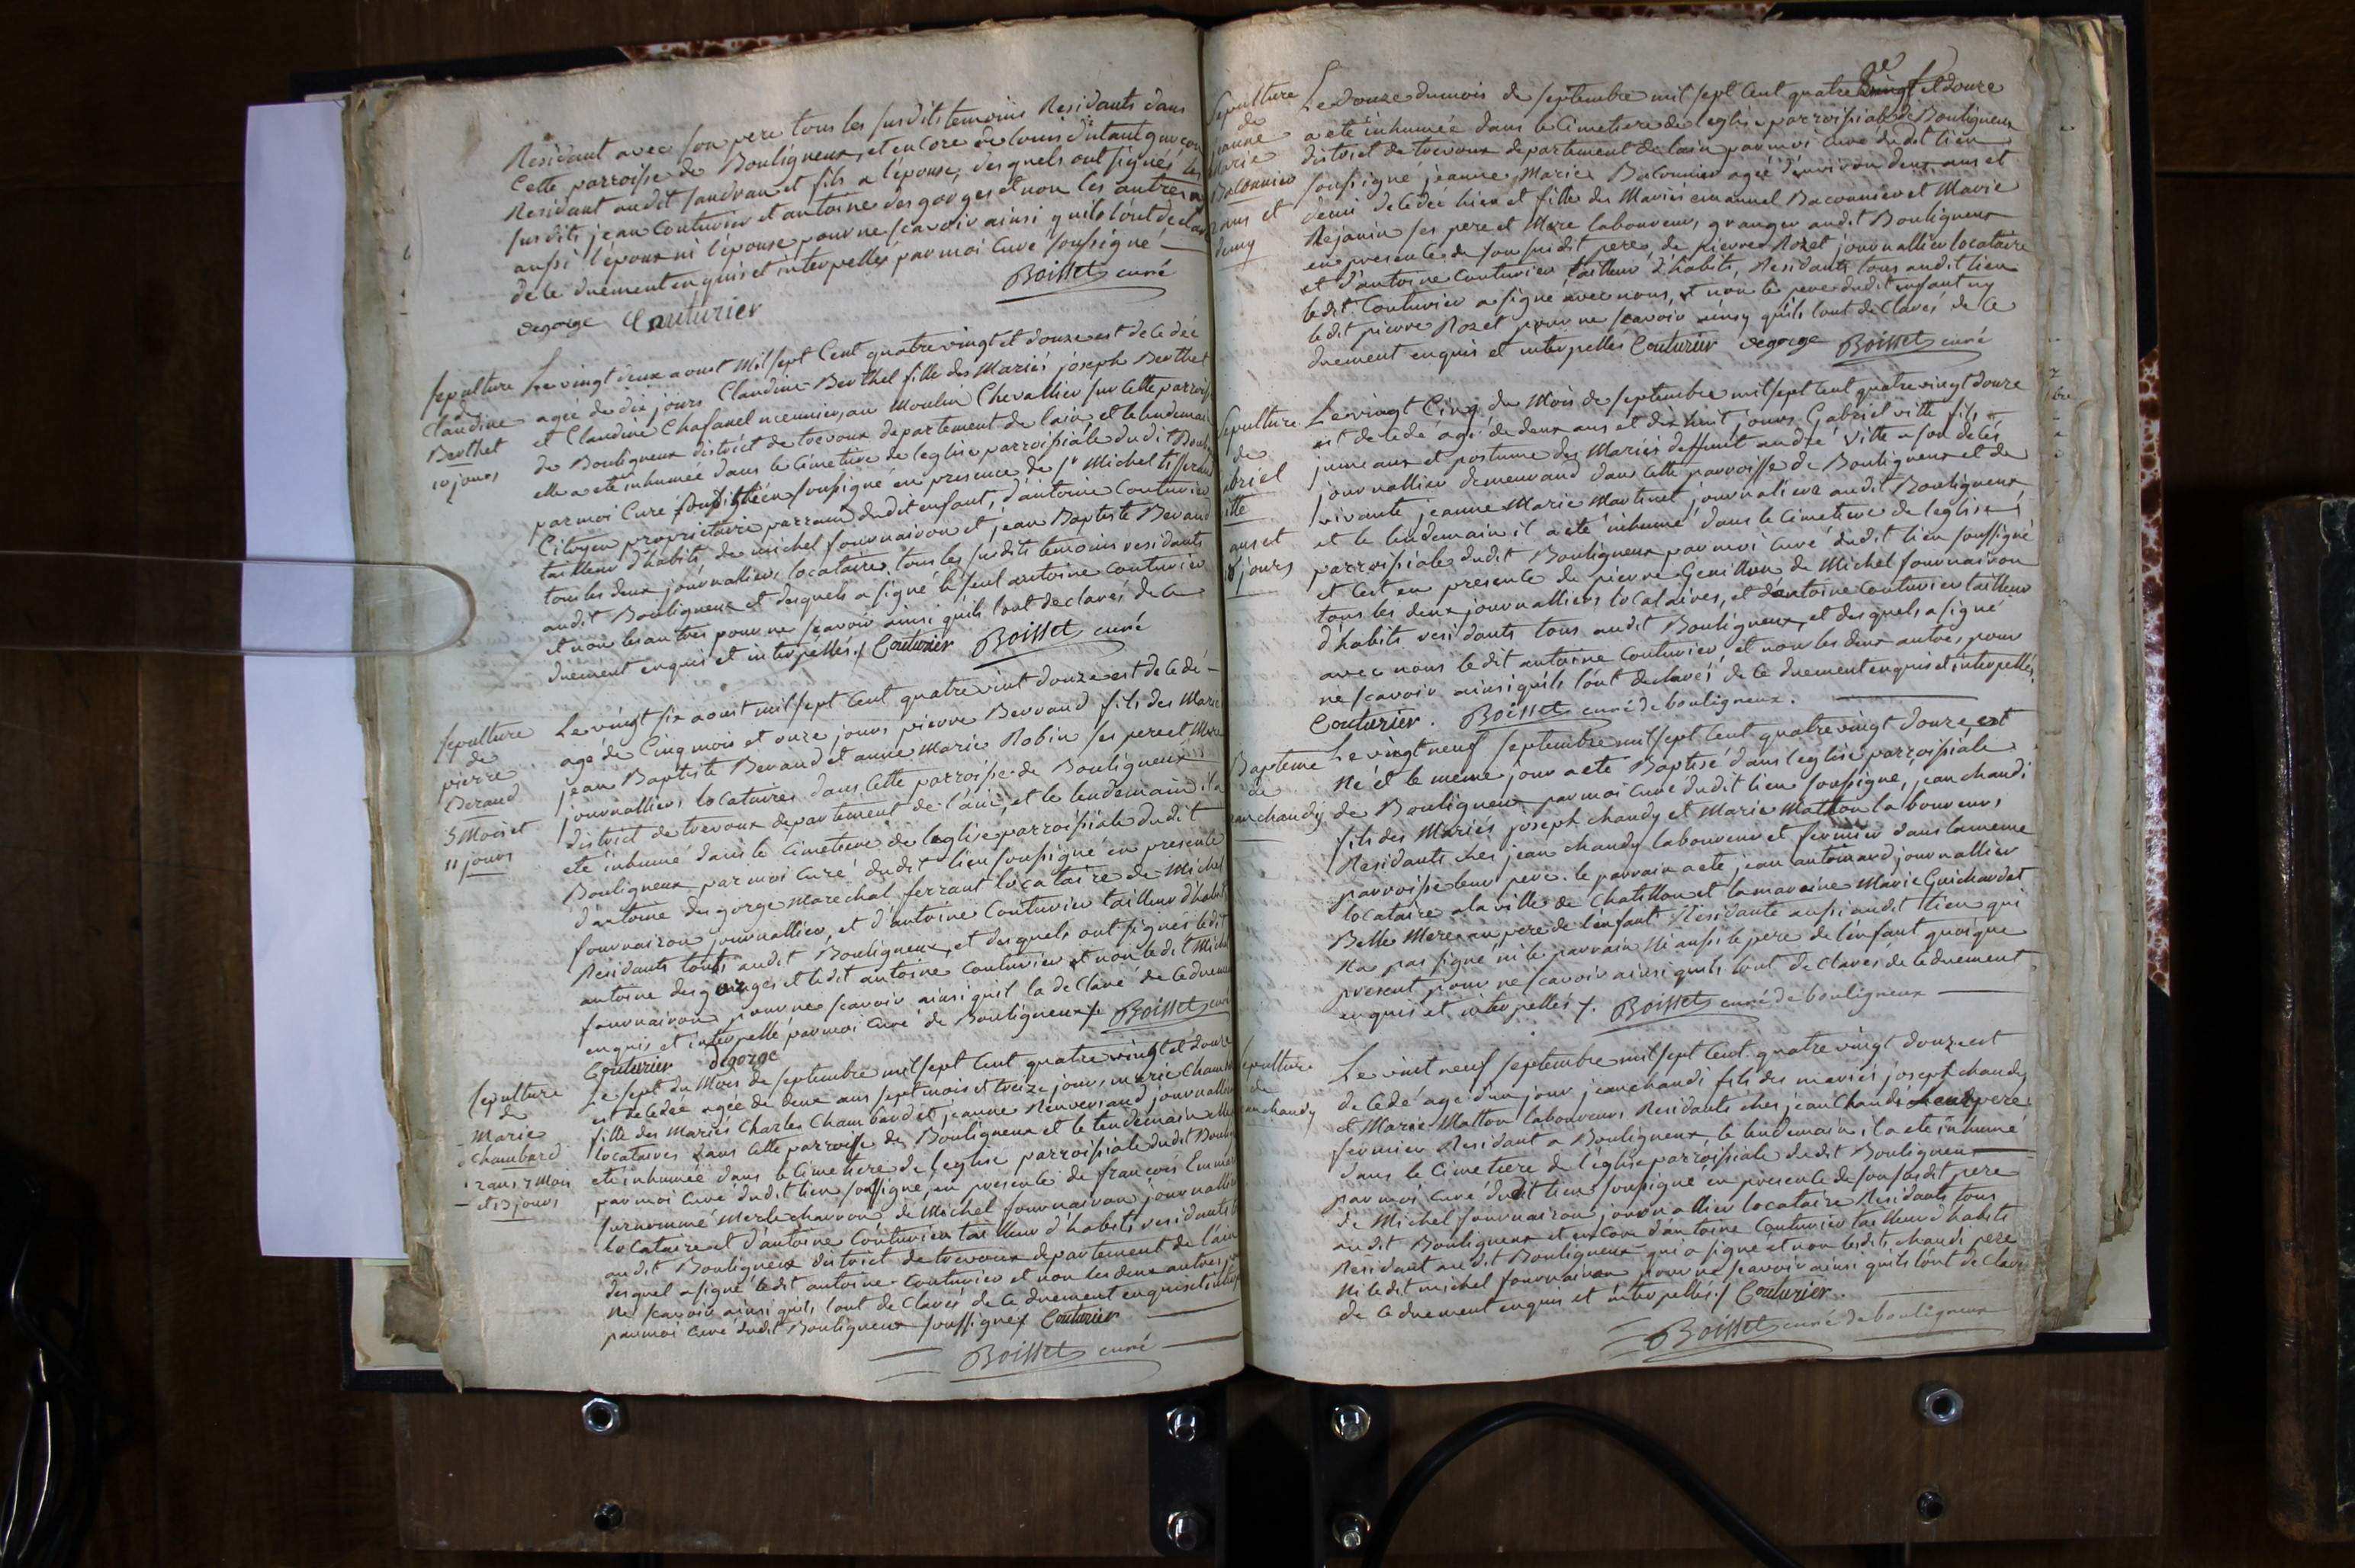 Residant avec son pere tous les susdits temoins Residants dans
Cette parroisse de Bouligneux, et encore de
Residant audit Sandran et fils a l'epouse, desquels ont signés les
susdits jean Couturier et antoine desgorges et non les autres
aussi l'epoux ni l'épouse pour ne scavoir ainsi quils l'ont declaré
de ce duement enquis et interpellés par moi Curé soussigné
Boisset curé
degorge Couturier
sepulture
de
Claudine
Berthet
10 jours
Le vingt deux aoust Mil sept Cent quatre vingt et douze est decedée
agée de dix jours Claudine Berthet fille des Mariés joseph Berthet
et Claudine Chafanel meunier, au Moulin Chevallier sur Cette parroisse
de Bouligneux district de trevoux departement de lain et le lendemain
elle a eté inhumée dans le Cimetiere de leglise parroissiale dudit
par moi Curé soussigné en presence de Sr Michel
Citoyen proprietaire parrain dudit enfant, d'antoine Couturier
tailleur d'habits de michel fournairon et jean Baptiste Beraud
tous les deux journalliers locataires, tous les susdits temoins residants
audit Bouligneux et desquels a signé le seul antoine Couturier
et non les autres pour ne scavoir ainsi quils l'ont declarés de ce
duement enquis et interpellés./ Couturier Boisset curé
sepulture
de
pierre
Beraud
5 Mois et
11 jours
Le vingt six aoust mil sept Cent quatre vint douze est decedé
agé de Cinq mois et onze jours pierre Berraud fils des Mariés
jean Baptiste Beraud et anne Marie Robin ses pere et Mere
journalliers locataires dans Cette parroisse de Bouligneux
district de trevoux departement de l'ain, et le lendemain il a
eté inhumé dans le Cimetiere de leglise parroissiale dudit
Bouligneux par moi Curé dudit lieu soussigné en presence
d'antoine desgorge Marechal ferrant locataire de Michel
fournairon journallier, et d'antoine Couturier tailleur d'habits
Residants tous audit Bouligneux, et desquels ont signés ledit
antoine desgorges et ledit antoine Couturier et non ledit Michel
fournairon pour ne scavoir ainsi quil la declaré de ce duement
enquis et interpellé par moi Curé de Bouligneux./. Boisset curé
Couturier degorge
sepulture
de
Marie
Chambard
2 ans 7 Mois
et 13 jours
Le sept du Mois de septembre mil sept Cent quatre vingt et douze
est decedée agée de deux ans sept mois et treize jours marie
fille des Mariés Charles Chambard et jeanne Renversand journalliers
locataires dans Cette parroisse de Bouligneux et le lendemain elle a
eté inhumée dans le Cimetiere de leglise parroissiale dudit
par moi Curé dudit lieu soussigné, en presence de francois
surnommé Merle charron de Michel fournairon journallier
locataire et d'antoine Couturier tailleur d'habits residants
audit Bouligneux district de trevoux departement de l'ain
desquel a signé ledit antoine Couturier et non les deux autres
ne scavoir ainsi quils l'ont declarés de ce duement enquis et
par moi Curé dudit Bouligneux soussigné./ Couturier
Boisset curé
Sepulture
de
jeanne
Marie
Baconnier
2 ans et
demy
Le douze du mois de septembre mil sept Cent quatre vingt et douze
a eté inhumée dans le Cimetiere de leglise parroissiale de Bouligneux
district de trevoux departement de lain par moi Curé dudit lieu
soussigné jeanne Marie Baconnier agée d'environ deux ans et
demi decedée hier et fille des Mariés emanuel Baconnier et Marie
Rejanin ses pere et Mere laboureurs, granger audit Bouligneux
en presence de son susdit pere, de pierre Rozet journallier locataire
et d'antoine Couturier tailleur d'habits, Residants tous audit lieu
ledit Couturier a signé avec nous, et non le pere dudit enfant ny
ledit pierre Rozet pour ne scavoir ainsy qu'ils l'ont declarés de ce
duement enquis et interpellés Couturier degorge Boisset curé
sepulture
de
Le vingt Cinq du Mois de septembre mil sept Cent quatre vingt douze
est decedé agé de deux ans et dix huit jours Gabriel ville fils
jumeaux et postume des Mariés deffunt andré ville a son decés
journallier demeurand dans Cette parroisse de Bouligneux et de
vivante jeanne Marie Martinet journaliere audit Bouligneux
et le lendemain il a eté inhumé dans le Cimetiere de leglise
parroissiale dudit Bouligneux par moi Curé dudit lieu soussigné
et C'est en presence de pierre Genillon de Michel fournairon
tous les deux journalliers locataires, et d'antoine Couturier tailleur
d'habits residants tous audit Bouligneux, et desquels a signé
avec nous ledit antoine Couturier et non les deux autres, pour
ne scavoir ainsi quils l'ont declarés, de ce duement enquis et interpellés
Couturier. Boisset curé de bouligneux.
Bapteme
de
jean chandy
Le vingt neuf septembre mil sept Cent quatre vingt douze est
Né et le meme jour a eté Baptisé dans l'eglise parroissiale
de Bouligneux par moi Curé dudit lieu soussigné, jean chandi
fils des Mariés joseph chandy et Marie Matton laboureurs
Residants ches jean chandy laboureur et fermier dans la meme
parroisse leur pere. le parrain a eté jean antoinard journallier
locataire a la ville de Chatillon et la maraine Marie Guichardet
Belle Mere au pere de l'enfant Residante aussi audit lieu qui
Na pas signé ni le parrain Ni aussi le pere de l'enfant quoique
present pour ne scavoir ainsi quils l'ont declarés de ce duement
enquis et interpellés /. Boisset curé de bouligneux
sepulture
de
jean chandy
Le vint neuf septembre mil sept Cent quatre vingt douze est
decedé agé d'un jour jean chandi fils des mariés joseph chandy
et Marie Matton laboureurs Residants ches jean Chandi pere
fermier Residant a Bouligneux, le lendemain il a eté inhumé
dans le Cimetiere de l'église parroissiale dudit Bouligneux
par moi Curé dudit lieu soussigné en presence de son susdit pere
de Michel fournairon journallier locataire Residants tous
audit Bouligneux et encore d'antoine Couturier tailleur d'habits
Residant audit Bouligneux qui a signé et non lesdits chandi pere
Ni ledit michel fournairon pour ne scavoir ainsi quils l'ont declaré
de ce duement enquis et interpellés./ Couturier.
Boisset curé de bouligneux